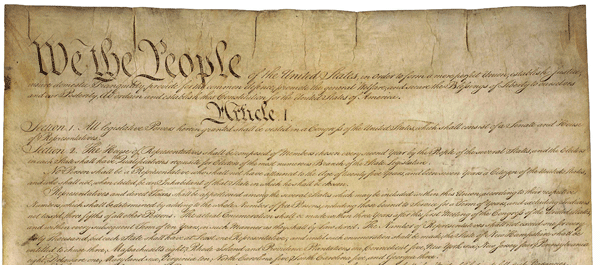 We the People of the United States, in Order to form a more perfect Union, establish Justice,
insure domestic Tranquility, provide for the common defence, promote the general Welfare, and secure the Blessings of Liberty to ourselves
and our Posterity, do ordain and establish this Constitution for the United States of America.
Article. I.
Section. 1. All legislative Powers herein granted shall be vested in a Congress of the United States, which shall consist of a Senate and House
of Representatives.
Section. 2. The House of Representatives shall be composed of Members chosen every second Year by the People of the several States, and the Electors
in each State shall have Qualifications requisite for Electors of the most numerous Branch of the State Legislature.
No Person shall be a Representative who shall not have attained to the Age of twenty five Years, and been seven Years a Citizen of the United States,
and who shall not, when elected, be an Inhabitant of that State in which he shall be chosen.
Representatives and direct Taxes shall be apportioned among the several States which may be included within this Union, according to their respective
Numbers, which shall be determined by adding to the whole Number of free Persons, including those bound to Service for a Term of Years, and excluding Indians
not taxed, three fifths of all other Persons. The actual Enumeration shall be made within three Years after the first Meeting of the Congress of the United States,
and within every subsequent Term of ten Years, in such Manner as they shall by Law direct. The Number of Representatives shall not exceed one for every
thirty Thousand, but each State shall have at Least one Representative; and until such enumeration shall be made, the State of New Hampshire shall be
entitled to chuse three, Massachusetts eight, Rhode-Island and Providence Plantations one, Connecticut five, New-York six, New Jersey four, Pennsylvania
eight, Delaware one, Maryland six, Virginia ten, North Carolina five, South Carolina five, and Georgia three.